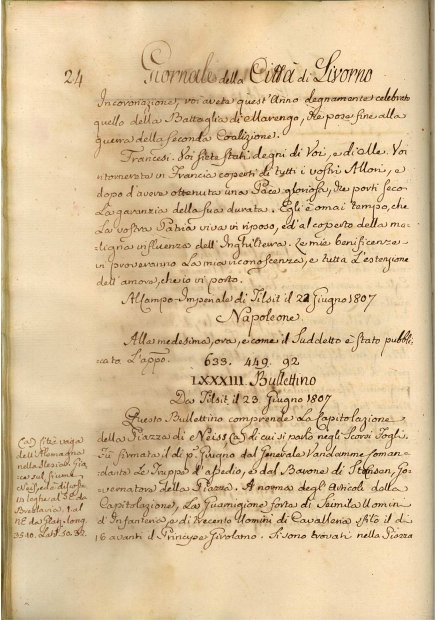 24
Giornale della Città di Livorno
Incoronazione, voi avete quest'Anno degnamente celebrato
quello della Battaglia di Marengo, che pose fine alla
guerra della seconda Coalizione.
Francesi. Voi siete stati degni di Voi, e di Me. Voi
ritornerete in Francia coperti di tutti i vostri Allori, e
dopo d'avere ottenuta una Pace gloriosa, che porti seco
La garanzia della sua durata. Egli è omai tempo, che
La vostra Patria viva in riposo, ed al coperto della ma-
ligna influenza dell'Inghilterra. Le mie beneficenze
vi proveranno La mia riconoscenza, e tutta L'estenzione
dell'amore, che io vi porto.
Al Campo Imperiale di Tilsit il 22 Giugno 1807
Napoleone.
Alla medesima, ora, e come il Suddetto è stato pubbli-
cato L'appo. 633. 449. 92
LXXXIII. Bullettino
Da Tilsit il 23 Giugno 1807
Questo Bullettino comprende La Capitolazione
della Piazza di Neiss (a) di cui si parlò negli Scorsi Fogli.
Fù firmata il dì p.º Giugno dal Generale Vandamme Coman-
dante Le Truppe d'assedio, e dal Barone di Go-
vernatore della Piazza. A norma degli Articoli della
Capitolazione, La Guarnigione forte di Seimila Uomini
d'Infanteria, e di trecento Uomini di Cavalleria sfilò il dì
16 avanti il Principe Girolamo. Si sono trovati nella Piazza
(a) Città vaga
dell'Alemagna
nella Slesia.
sul fiume
Neiss,
leghe al S.E. da
Breslavia,
long.
35.10. Lat. 50.32.